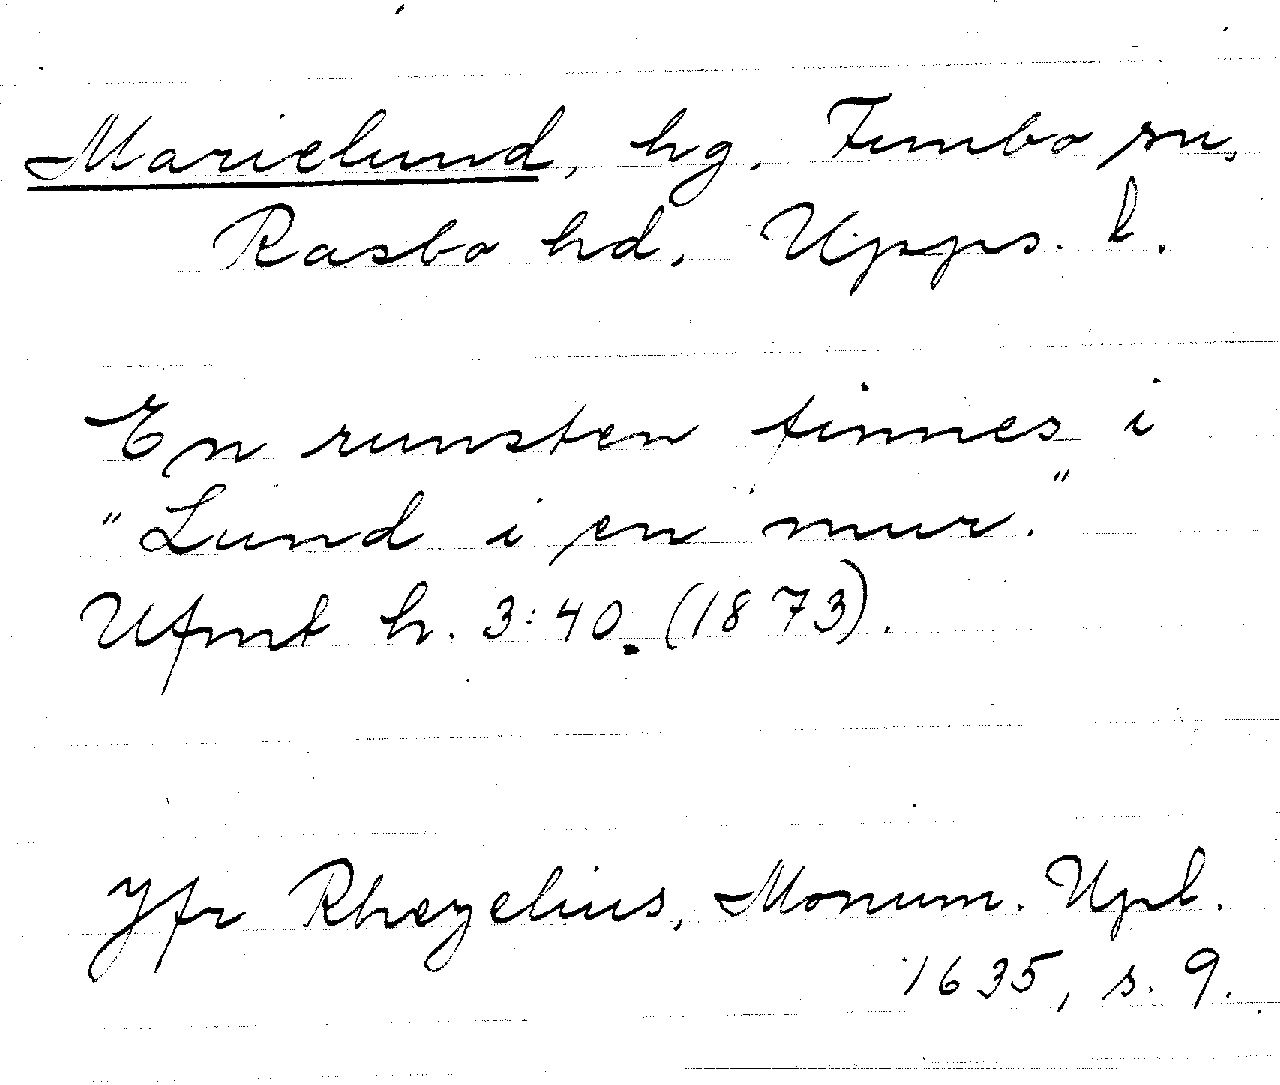 Marielund, hg, Funbo sn,
Rasbo hd, Upps. l.
En runsten finnes i
"Lund i en mur."
Ufmt h. 3:40. (1873).
Jfr Rhezelius, Monum. Upl.
1635, s. 9.